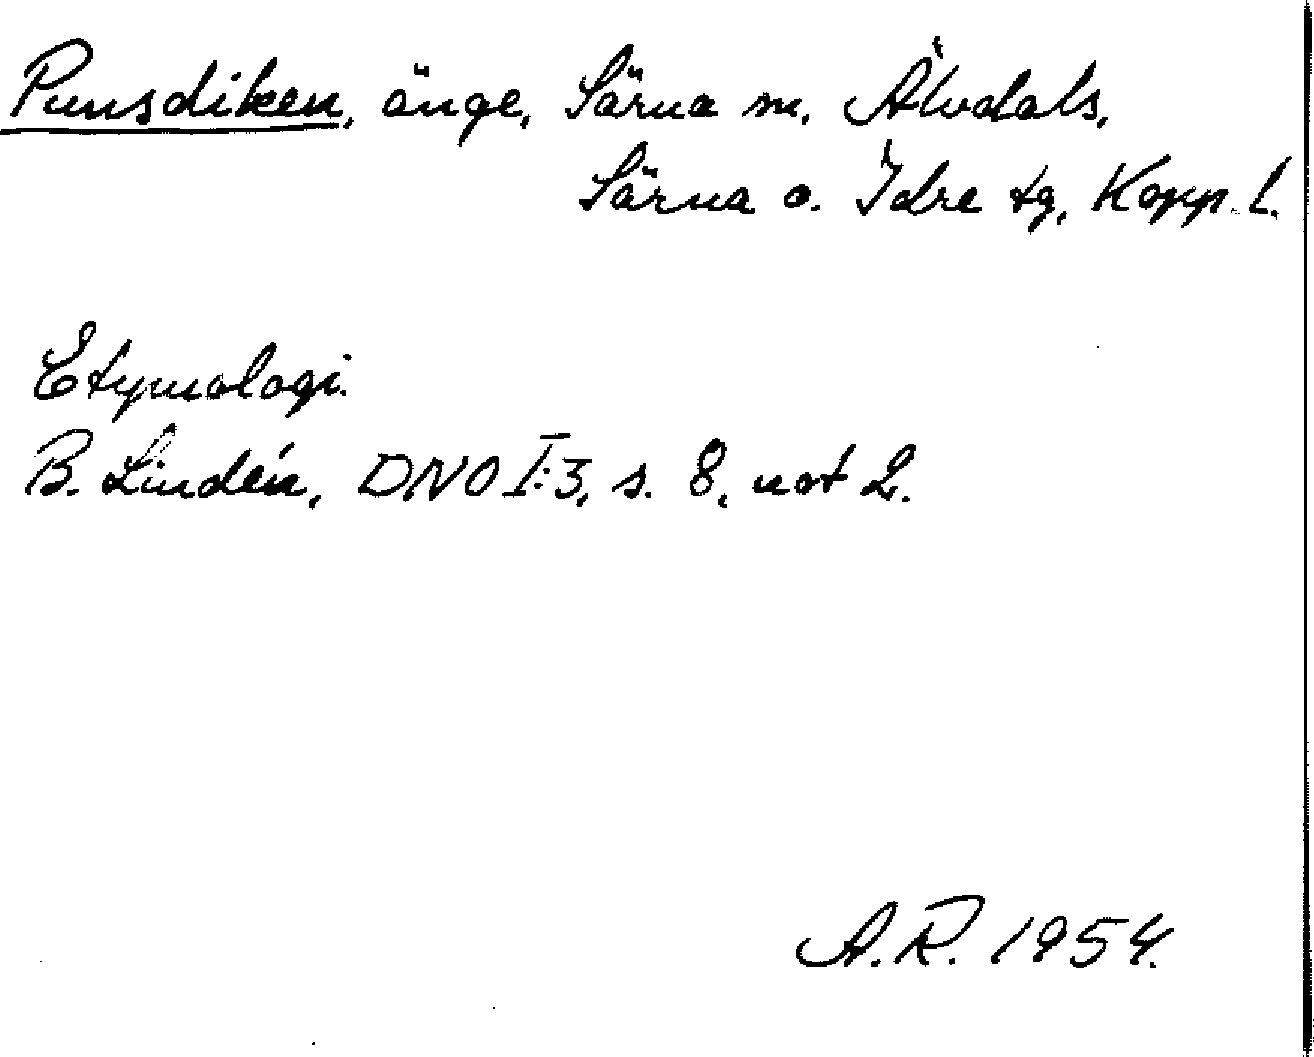 Punsdiken, änge, Särna sn, Älvdals,
Särna o. Idre tg, Kopp. l.
Etymologi.
B. Lindén, DNO I:3, s. 8, not 2.
A.R. 1954.